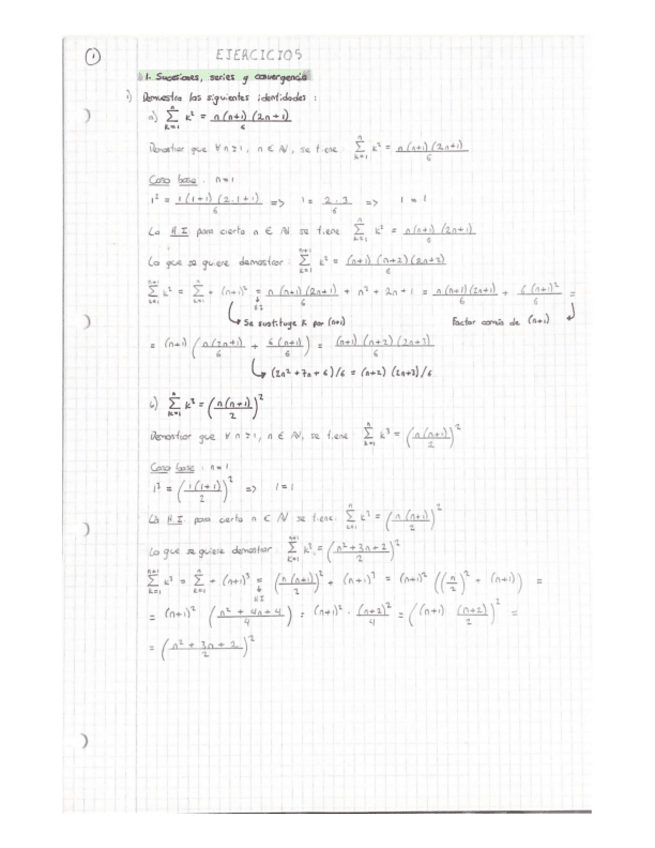 1
EJERCICIOS
1. Sucesiones, series y convergencia
1) Demuestra las siguientes identidades :
a) ∑_{k=1}^{n} k² = n(n+1)(2n+1)/6
Demostrar que ∀ n ≥ 1, n ∈ ℕ, se tiene : ∑_{k=1}^{n} k² = n(n+1)(2n+1)/6
Caso base : n=1
1² = 1(1+1)(2·1+1)/6 => 1 = 2·3/6 => 1 = 1
La H.I para cierto n ∈ ℕ se tiene ∑_{k=1}^{n} k² = n(n+1)(2n+1)/6
Lo que se quiere demostrar : ∑_{k=1}^{n+1} k² = (n+1)(n+2)(2n+3)/6
∑_{k=1}^{n+1} k² = ∑_{k=1}^{n} + (n+1)² = n(n+1)(2n+1)/6 + n² + 2n + 1 = n(n+1)(2n+1)/6 + 6(n+1)²/6 =
HI
Se sustituye k por (n+1) Factor común de (n+1)
= (n+1) (n(2n+1)/6 + 6(n+1)/6) = (n+1)(n+2)(2n+3)/6
(2n² + 7n + 6)/6 = (n+2)(2n+3)/6
b) ∑_{k=1}^{n} k³ = (n(n+1)/2)²
Demostrar que ∀ n ≥ 1, n ∈ ℕ, se tiene : ∑_{k=1}^{n} k³ = (n(n+1)/2)²
Caso base : n=1
1³ = (1(1+1)/2)² => 1=1
La H.I para cierto n ∈ ℕ se tiene: ∑_{k=1}^{n} k³ = (n(n+1)/2)²
Lo que se quiere demostrar : ∑_{k=1}^{n+1} k³ = (n²+3n+2/2)²
∑_{k=1}^{n+1} k³ = ∑_{k=1}^{n} + (n+1)³ = (n(n+1)/2)² + (n+1)³ = (n+1)² ((n/2)² + (n+1)) =
HI
= (n+1)² (n² + 4n + 4/4) = (n+1)² · (n+2)²/4 = ((n+1) (n+2)/2)² =
= (n² + 3n + 2/2)²